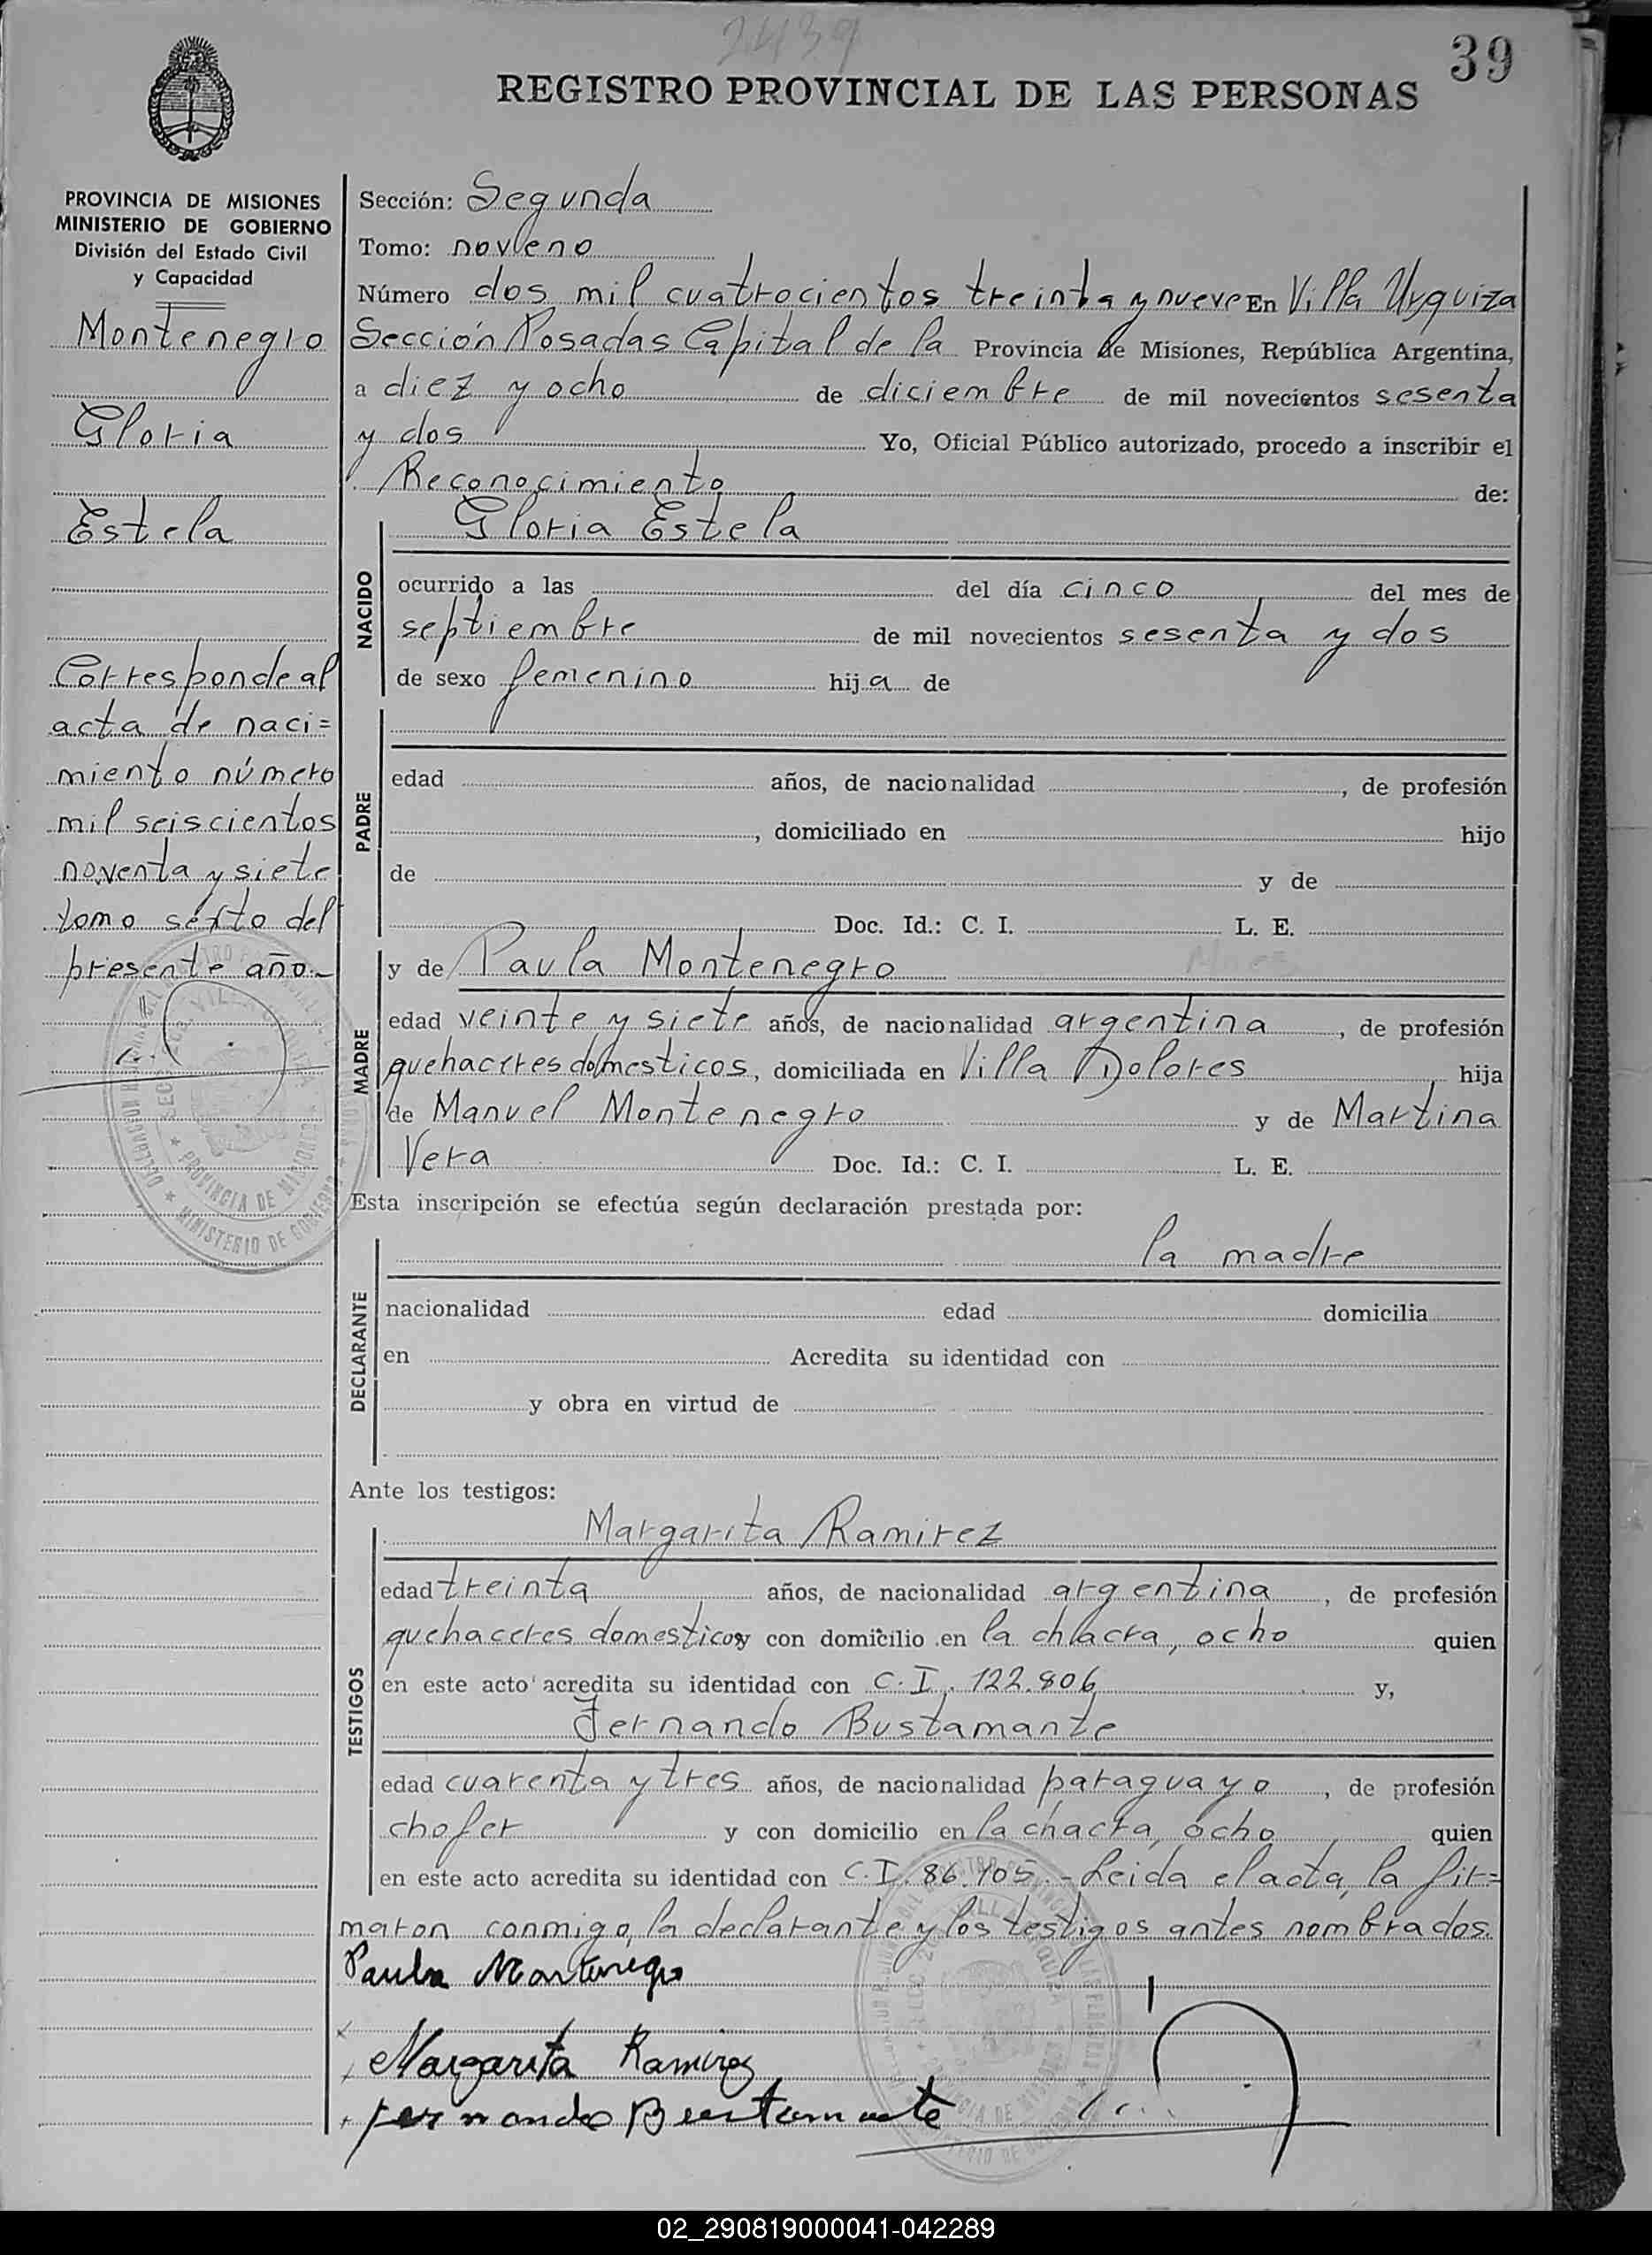 2439
39
REGISTRO PROVINCIAL DE LAS PERSONAS
PROVINCIA DE MISIONES
MINISTERIO DE GOBIERNO
División del Estado Civil
y Capacidad
Montenegro
Gloria
Estela
Corresponde al
acta de naci=
miento número
mil seiscientos
noventa y siete
tomo sexto del
presente año.-
Sección: Segunda
Tomo: noveno
Número dos mil cuatrocientos treinta y nueve En Villa Urquiza
Sección Posadas Capital de la Provincia de Misiones, República Argentina,
a diez y ocho de diciembre de mil novecientos sesenta
y dos Yo, Oficial Público autorizado, procedo a inscribir el
Reconocimiento de:
Gloria Estela
NACIDO
ocurrido a las del día cinco del mes de
septiembre de mil novecientos sesenta y dos
de sexo femenino hija de
PADRE
edad años, de nacionalidad , de profesión
, domiciliado en hijo
de y de
Doc. Id.: C. I. L. E.
y de Paula Montenegro
MADRE
edad veinte y siete años, de nacionalidad argentina , de profesión
quehaceres domesticos, domiciliada en Villa Dolores hija
de Manuel Montenegro y de Martina
Vera Doc. Id.: C. I. L. E.
Esta inscripción se efectúa según declaración prestada por:
la madre
DECLARANTE
nacionalidad edad domicilia
en Acredita su identidad con
y obra en virtud de
Ante los testigos:
Margarita Ramirez
TESTIGOS
edad treinta años, de nacionalidad argentina , de profesión
quehaceres domesticos y con domicilio en la chacra, ocho quien
en este acto acredita su identidad con C.I. 122.806 y,
Fernando Bustamante
edad cuarenta y tres años, de nacionalidad paraguayo , de profesión
chofer y con domicilio en la chacra, ocho quien
en este acto acredita su identidad con C.I. 86.105.- Leida el acta, la fir=
maron conmigo, la declarante y los testigos antes nombrados.
Paula Montenegro
Margarita Ramirez
fernando Bustamante
PROVINCIA DE MISIONES
MINISTERIO DE GOBIERNO
02_290819000041-042289